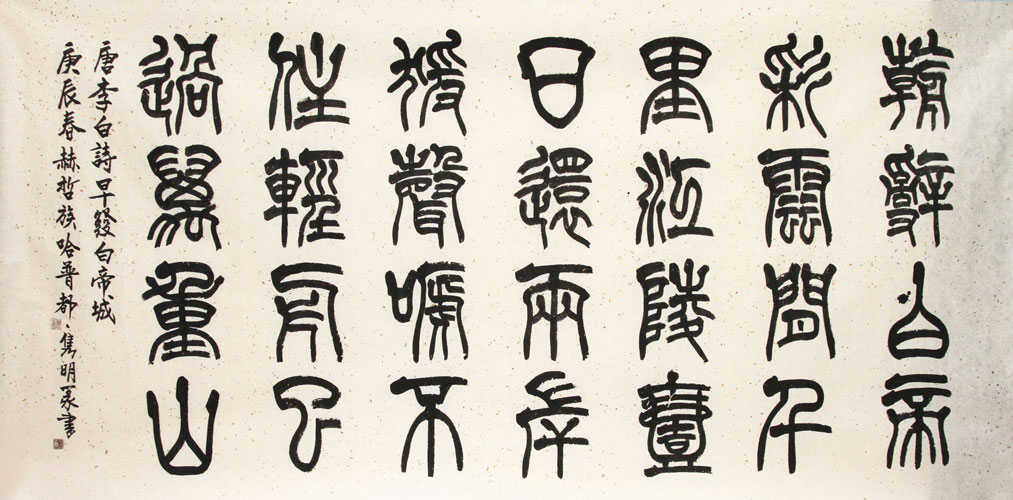 朝辭白帝
彩雲間千
里江陵壹
日還兩岸
猨聲嗁不
住輕舟已
過萬重山
唐李白詩早發白帝城
庚辰春赫哲族哈普都·隽明篆書